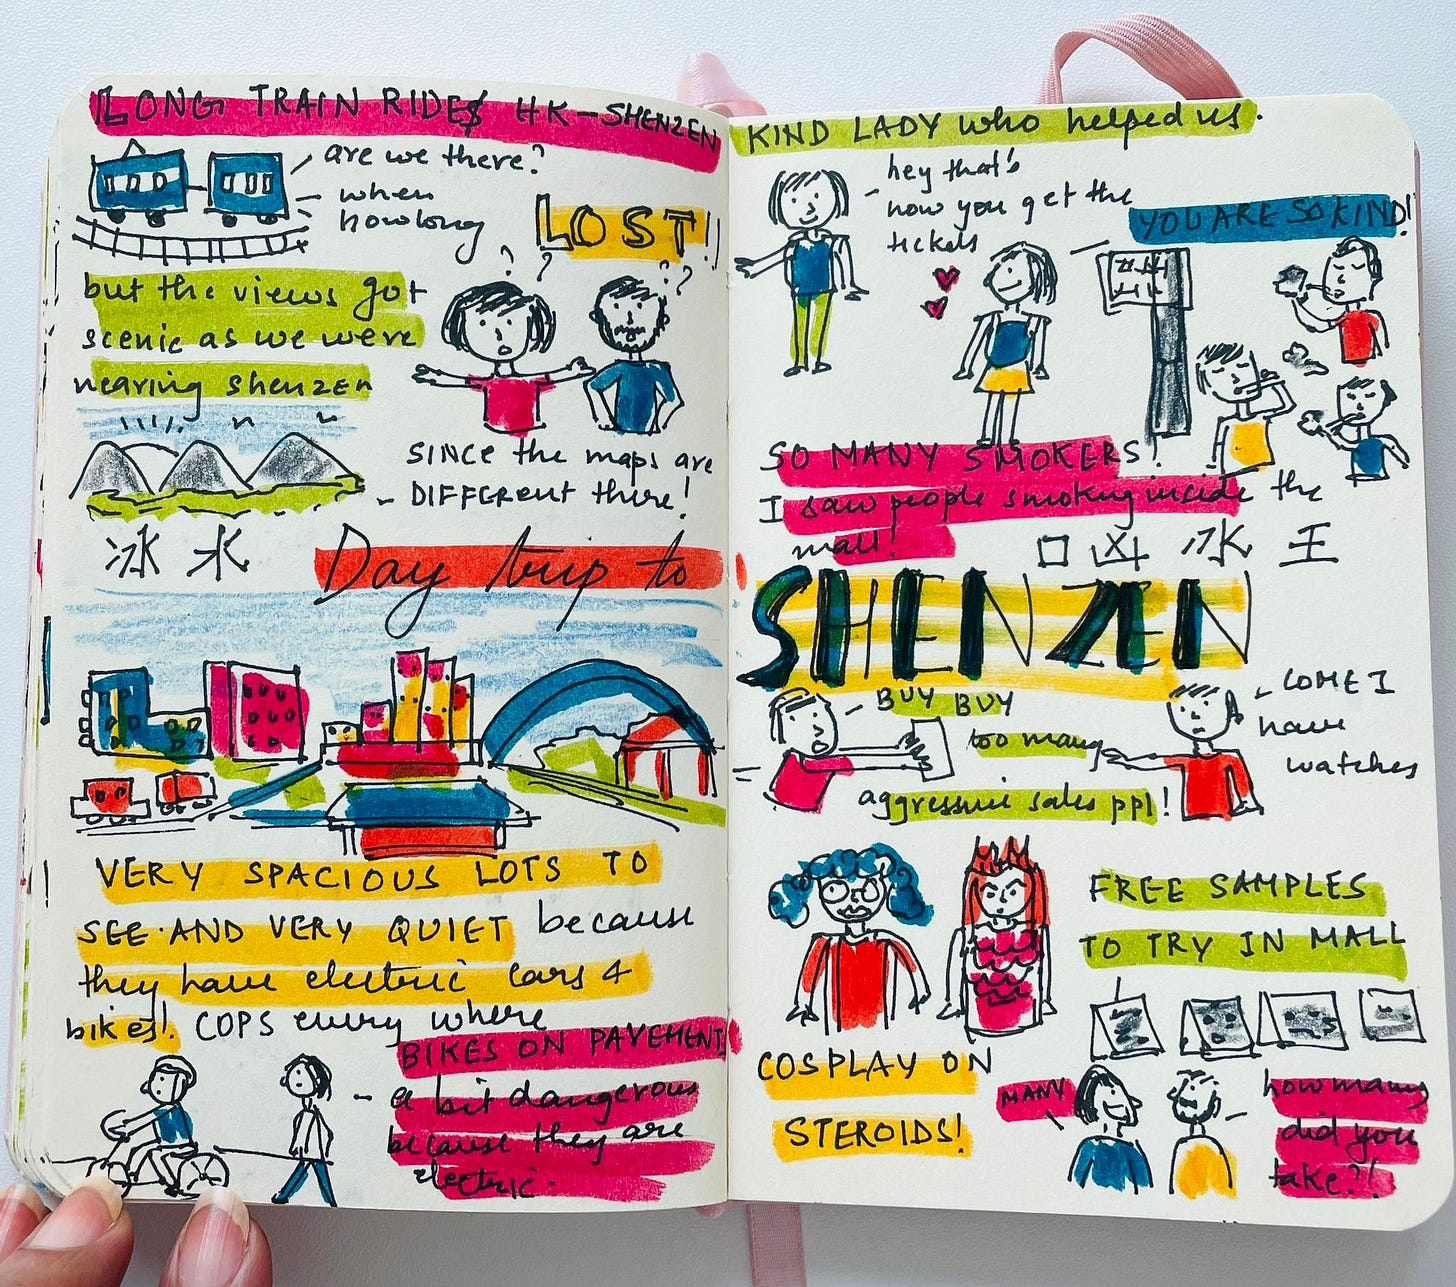 LONG TRAIN RIDES HK-SHENZEN
are we there?
when
how long
LOST!!
? ? ? ?
but the views got
scenic as we were
nearing shenzen
SINCE the maps are
DIFFERENT there!
冰 水
Day trip to
VERY SPACIOUS LOTS TO
SEE. AND VERY QUIET because
they have electric cars &
bikes! COPS every where
BIKES ON PAVEMENTS
a bit dangerous
because they are
electric.
KIND LADY who helped us.
hey that's
how you get the
tickets
YOU ARE SO KIND!
SO MANY SMOKERS!
I saw people smoking inside the
mall!
口 凶 水 王
SHENZEN
BUY BUY
too many
aggressive sales ppl!
COME I
have
watches
FREE SAMPLES
TO TRY IN MALL
COSPLAY ON
STEROIDS!
MANY
how many
did you
take?!